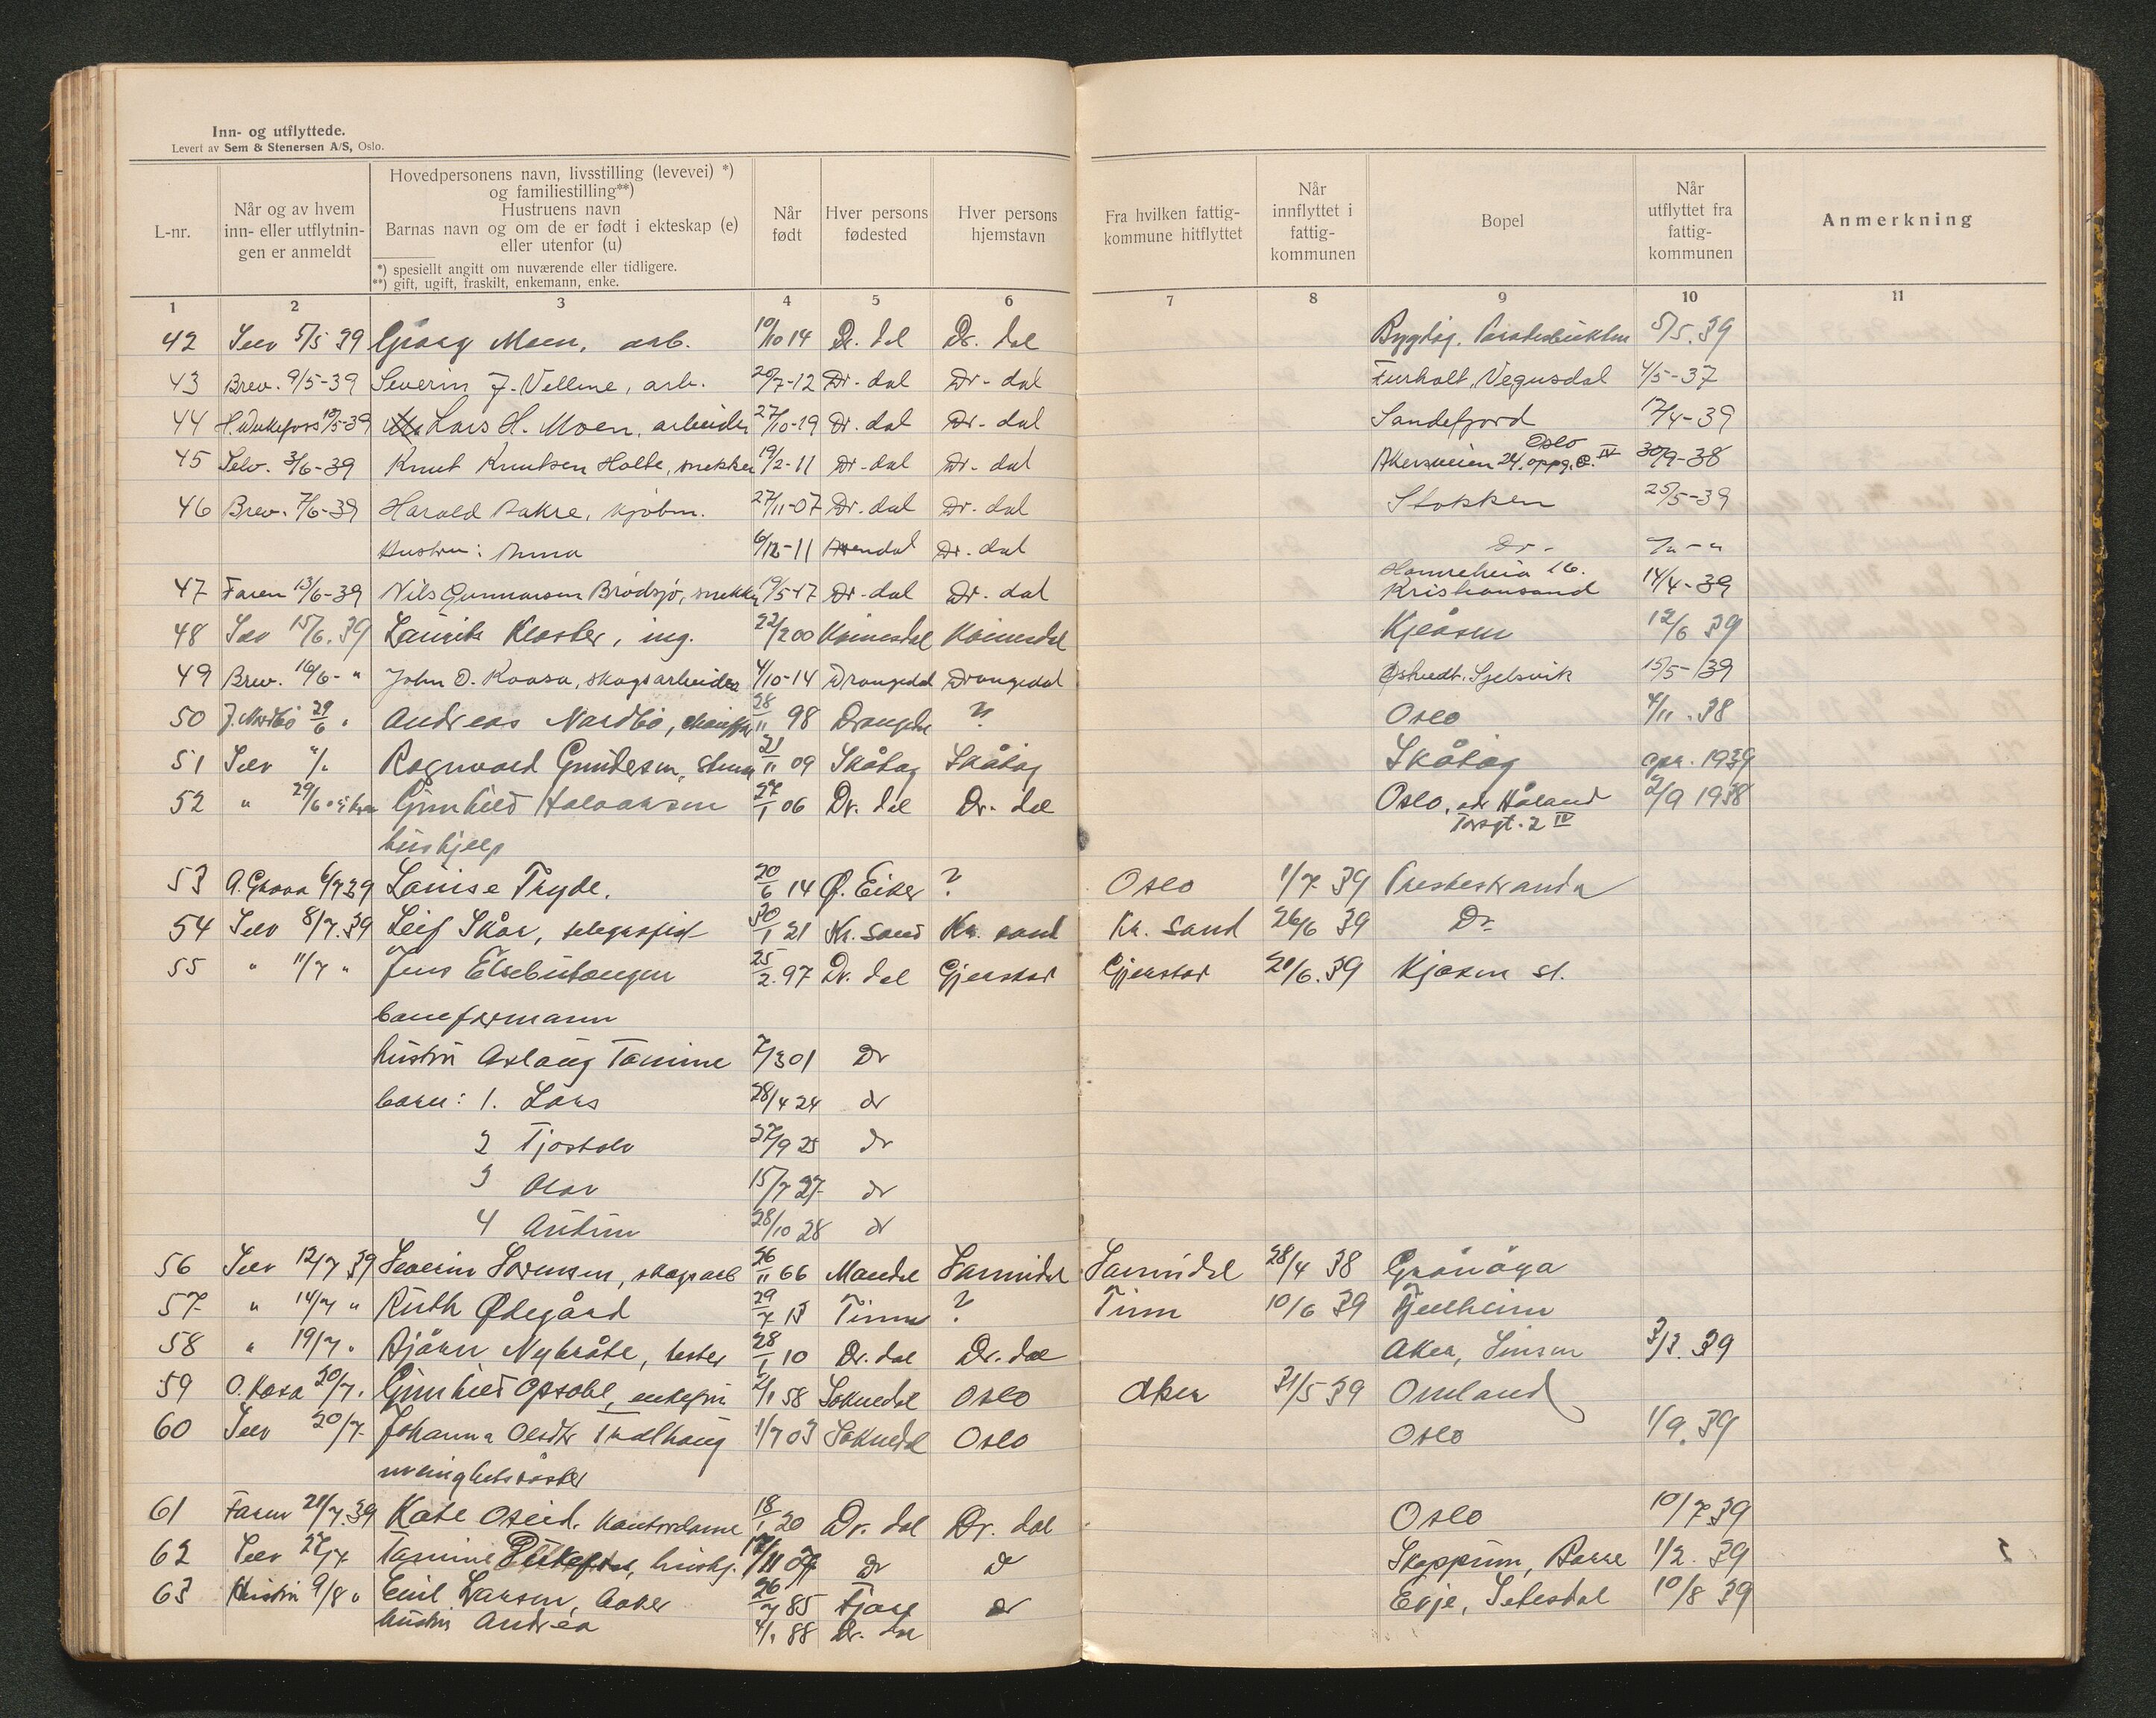 Inn- og utflyttede.
Levert av Sem & Stenersen A/S, Oslo.
L-nr.
Når og av hvem inn- eller utflytnin-gen er anmeldt
Hovedpersonens navn, livsstilling (levevei) *)
og familiestilling**)
Hustruens navn
Barnas navn og om de er født i ekteskap (e)
eller utenfor (u)
*) spesiellt angitt om nuværende eller tidligere.
**) gift, ugift, fraskilt, enkemann, enke.
Når født
Hver persons fødested
Hver persons hjemstavn
Fra hvilken fattig-kommune hitflyttet
Når innflyttet i fattig-kommunen
Bopel
Når utflyttet fra fattig-kommunen
Anmerkning
1 2 3 4 5 6 7 8 9 10 11
42 Selv 5/5 39 Georg Moen, arb. 10/10 14 Dr. dal Dr. dal Bygdøy. 5/5. 39
43 Brev. 9/5-39 Severin J. Vellene, arb. 20/7-12 Dr-dal Dr-dal Furholt, Vegusdal 4/5-37
44 5-39 Lars H. Moen, arbeider 27/10-19 Dr. dal Dr-dal Sandefjord 17/4-39
45 Selv. 3/6-39 Knut Knutsen Holte, snekker 19/2-11 Dr-dal Dr-dal Oslo Akersveien 24. oppg. IV 30/9-38
46 Brev. 7/6-39 Harald Aakre, kjøbm. 27/11-07 Dr. dal Dr. dal Stokken 25/5-39
Hustru: Anna 6/12-11 Arendal Dr. dal Do-
47 Faren 13/6-39 Nils Gunnarsen Brødsjø, snekker 19/5-17 Dr-dal Dr. dal 16. Kristiansand 14/4-39
48 Selv 15/6. 39 Lauritz Kloster, ing. 22/2 00 Kvinesdal Kvinesdal Kjeåsen 12/6 39
49 Brev. 16/6- " John O. Kaasa, skogsarbeider 4/10-14 Drangedal Drangedal 15/5-39
50 J. Nordbø 29/6 " Andreas Nordbø, 28/11 98 Drangedal ? Oslo 4/11. 38
51 Selv "/" Ragnvald Gundersen, 21/11 09 Skåtøy Skåtøy Skåtøy apr. 1939
52 " 29/6 Gunhild Halvorsen 27/1 06 Dr. dal Dr. dal Oslo, adr Håland 2/9 1938
hushjelp Torsgt. 2 IV
53 A. Grava 6/7 39 Louise Thyde. 20/6 14 Ø. Eiker ? Oslo 1/7 39 Prestestranda
54 Selv 8/7. 39 Leif Skår, telegrafist 30/1 21 Kr. sand Kr. sand Kr. sand 26/6 39 Do
55 " 11/7 " Jens Elsebutangen 25/2. 97 Dr. dal Gjerstad Gjerstad 20/6. 39 Kjosen st.
baneformann
hustru Aslaug Tomine 7/3 01 Do
barn: 1. Lars 28/4 24 do
2 Tjostolv 27/9 25 do
3 Olav 15/7 27 do
4 28/10 28 do
56 Selv 12/7 39 Severin Sørensen, skogsarb 26/11 66 Mandal Sannidal Sannidal 28/4 38 Grønåga
57 " 14/7 " Ruth Ødegård 29/7 15 Tinn ? Tinn 10/6 39 Fjellheim
58 " 19/7 " Bjørn Nybråte, 28/1 10 Dr. dal Dr. dal Aker, Sinsen 3/3. 39
59 O. Kasa 20/7. Gunhild Opsahl, enkefru 2/1 58 Lokmedal Oslo Aker 31/5 39 Omland
60 Selv 20/7 Johanna Olsdtr 1/7 03 Oslo Oslo 1/9. 39
61 Faren 21/7. 39 Kate Oseid. kontordame 18/1 20 Dr. dal Dr. dal Oslo 10/7 39
62 Selv 27/7 Tomine hushj. 17/11 07 Do do Skoppum, Borre 1/2. 39
63 Hustru 9/8 " Emil Larsen, baker 26/7 85 Fjære do Evje, Setesdal 10/8 39
hustru Andréa 4/1 88 Dr. dal